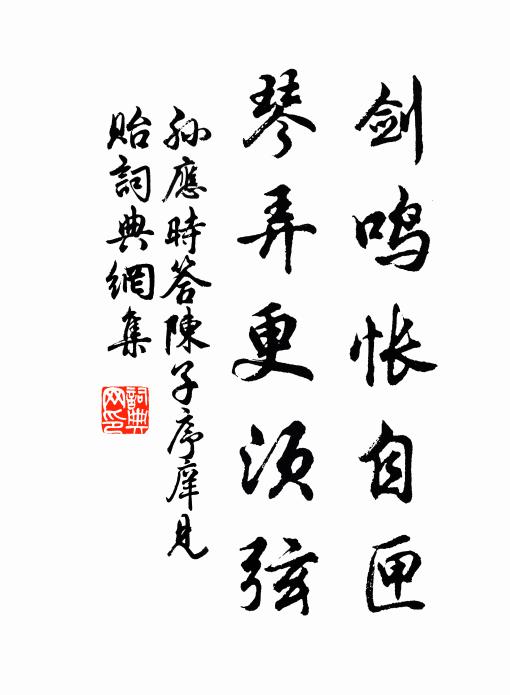 剑鸣怅自匣
琴弄更须弦
孙應時答陳子序庠見
貽詞典網集
詞典网印